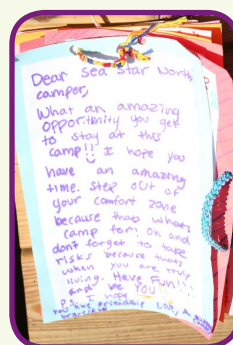 Dear Sea Star North
camper,
What an amazing
opportinity you get
to stay at this
camp!! I hope you
have an amazing
time. Step out of
your comfort zone
because that whats
camp for! Oh and
dont forget to take
risks because thats
when you are truly
living. Have Fun!!!
and be YOU
P.S. I hope
you like friendship